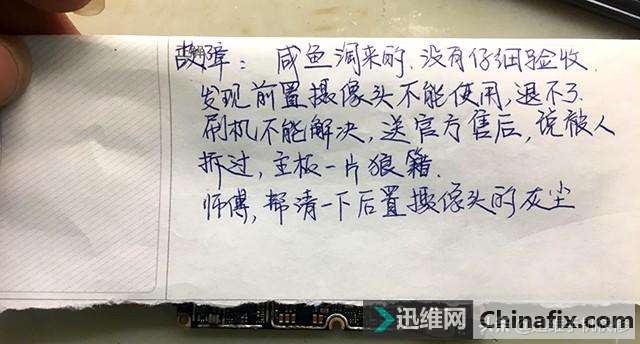 故障：咸鱼淘来的.没有仔细验收.
发现前置摄像头不能使用,退不了.
刷机不能解决,送官方售后,说被人
拆过,主板一片狼籍.
师傅,帮清一下后置摄像头的灰尘
迅维网 Chinafix.com